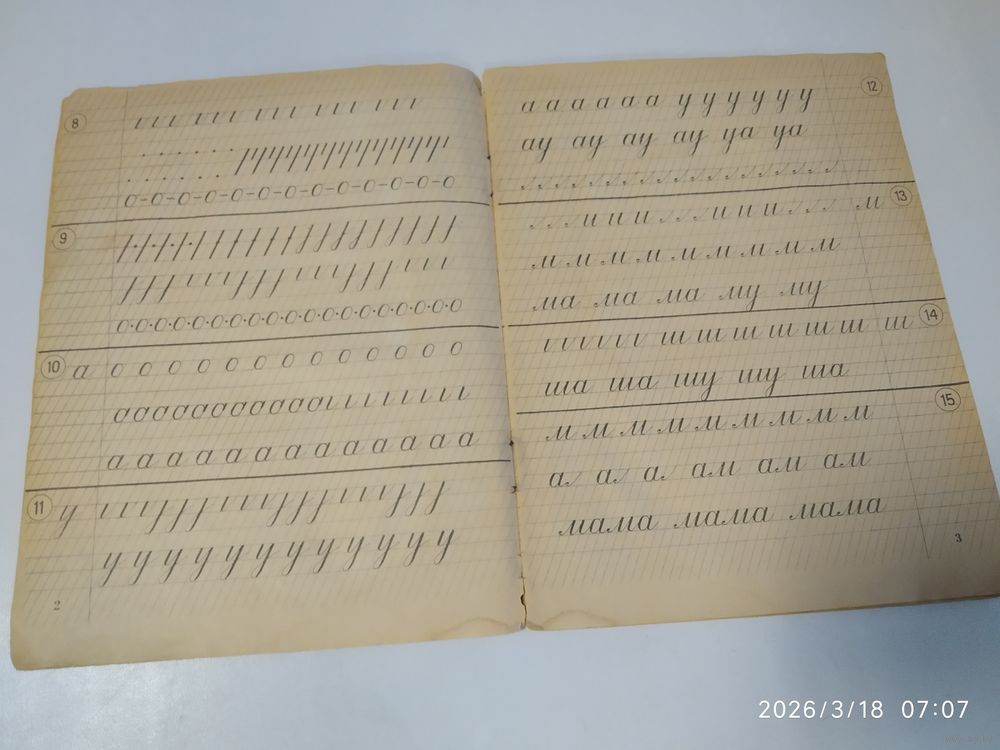 8
о-о-о-о-о-о-о-о-о-о-о-о-о
9
о·о·о·о·о·о·о·о·о·о·о·о·о·о·о·о·о·о
10 а о о о о о о о о о о о о о
а а а а а а а а а а а а а
11 у
у у у у у у у у у у у у
2
12
а а а а а а у у у у у у
ау ау ау ау уа уа
13
и и и и и и м
м м м м м м м м м
ма ма ма му му
14
ш ш ш ш ш ш ш
ша ша шу шу ша
15
м м м м м м м м м
а а а ам ам ам
мама мама мама
3
2026/3/18 07:07